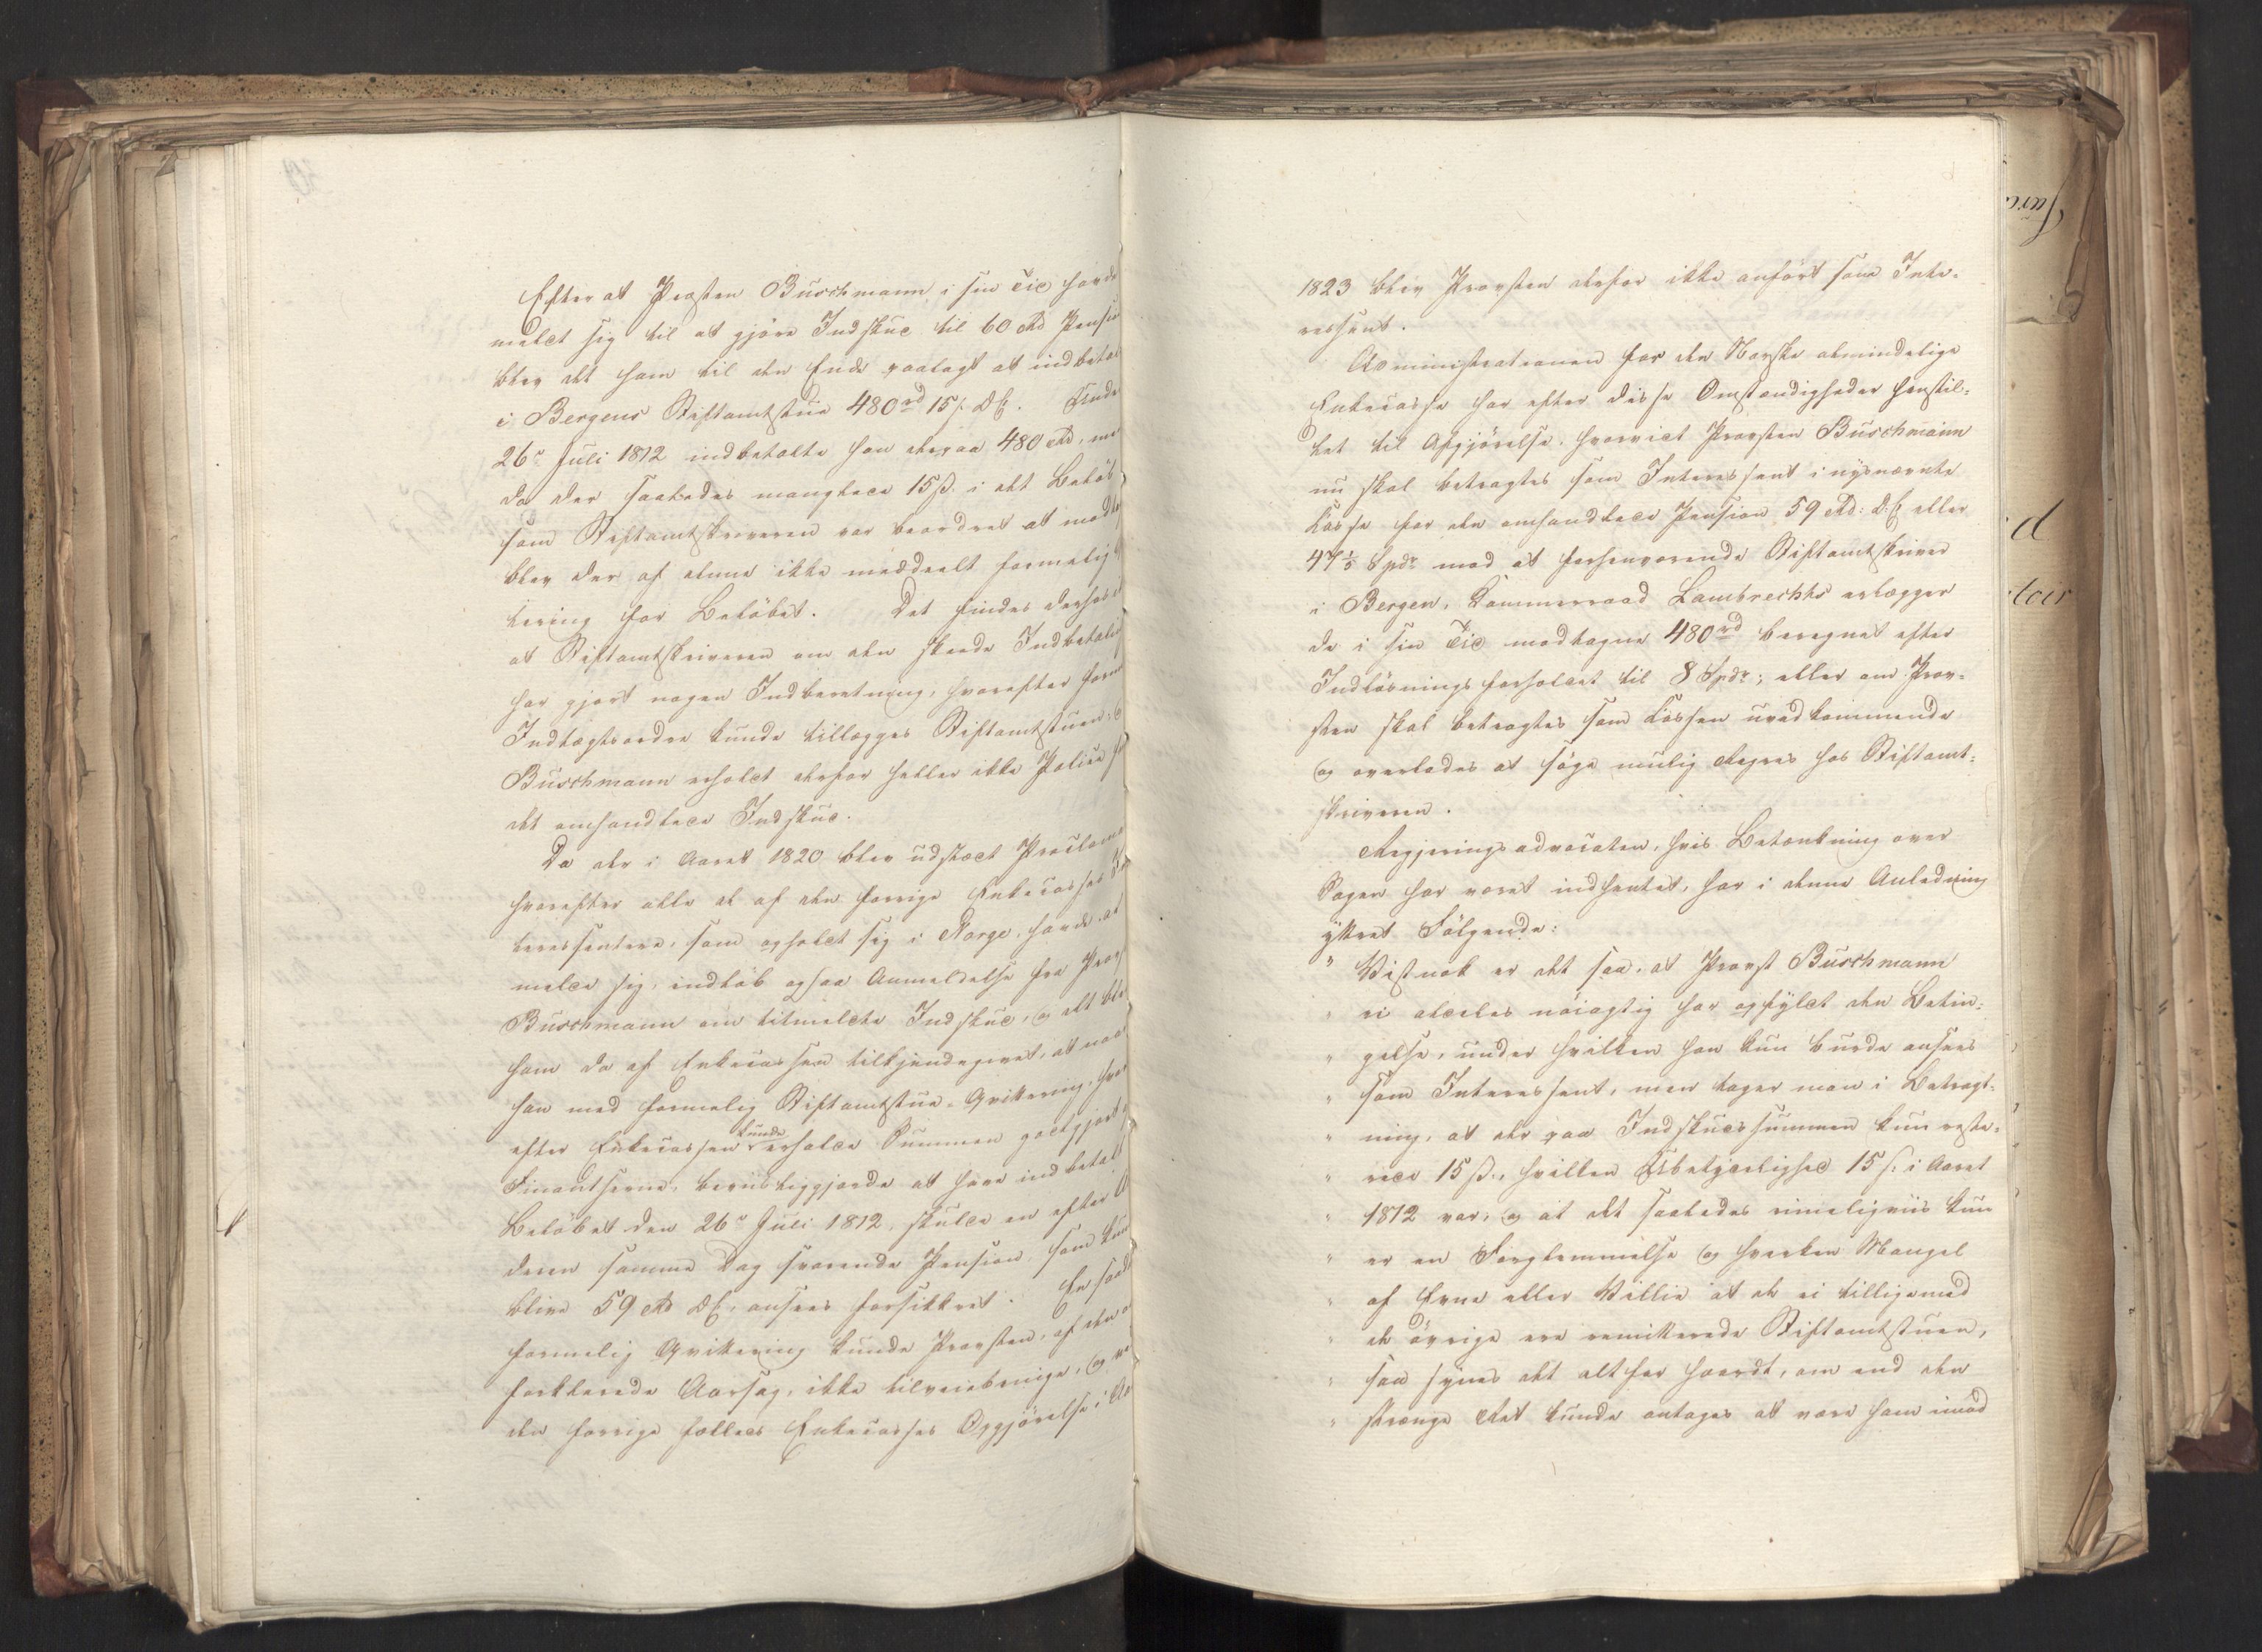 Efterat Provsten Buschmann i sin Tid havde
meldt sig til at gjöre Indskud til 60 Rd Pensio
blev det ham til den Ende paalagt at indbetal
i Bergens Stiftamtstue 480 rd 15 s. D.C. Under
26de Juli 1812 indbetalte han derpaa 480 Rd, me
da der saaledes manglede 15 s. i det Belöb
som Stiftamtskriveren var beordret at modta
blev der af denne ikke meddeelt formelig
tering for Belöbet. Det findes derhos i
at Stiftamtskriveren om den skeede Indbetalin
har gjort nogen Indberetning, hvorefter form
Indtægtsordre kunde tillægges Stiftamtstuen, o
Buschmann erholdt derfor heller ikke Police fo
det omhandlede Indskud.
Da der i Aaret 1820 blev udstædt Proclama
hvorefter alle de af den forrige Enkecasses In
teressentere, som opholdt sig i Norge, havde at
melde sig, indlöb ogsaa Anmeldelse fra Prov
Buschmann om tilmeldte Indskud, og det ble
ham da af Enkecassen tilkjendegivet, at naar
han med formelig Stiftamtstue-Qvittering, hvor
efter Enkecassen kunde erholde Summen godtgjort
Finantserne, beviisliggjorde at have indbetalt
Belöbet den 26de Juli 1812, skulde en efter
deren samme Dag svarende Pension, som kun
blive 59 Rd D.C. ansees forsikkret. En saad
formelig Qvittering kunde Provsten, af den o
forklarede Aarsag, ikke tilveiebringe, og ve
den forrige fælleds Enkecasses Opgjörelse i Aa
1823 blev Provsten derfor ikke anfört som Inte-
ressent.
Administrationen for den Norske almindelige
Enkecasse har efter disse Omstændigheder henstil-
let til Afgjörelse, hvorvidt Provsten Buschmann
nu skal betragtes som Interessent i nysnævnte
Casse for den omhandlede Pension 59 Rd: D.C. eller
47 1/5 Spdr mod at forhenværende Stiftamtskriver
i Bergen, Kammerraad Lambrechts erlægger
de i sin Tid modtagne 480 rd beregnet efter
Indlösningsforholdet til 8 Spdr; eller om Prov-
sten skal betragtes som Cassen uvedkommende
og overlades at söge mulig Regres hos Stiftamt-
skriveren.
Regjeringsadvocaten, hvis Betænkning over
Sagen har været indhentet, har i denne Anledning
yttret Fölgende:
" Vistnok er det saa, at Provst Buschmann
" ei aldeles nöiagtig har opfyldt den Betin-
" gelse, under hvilken han kun burde ansees
" som Interessent, men tager man i Betragt-
" ning, at der paa Indskudssummen kun reste-
" rede 15 s., hvilken Ubetydelighed 15 s. i Aaret
" 1812 var, og at det saaledes rimeligviis kun
" er en Forglemmelse og hverken Mangel
" af Evne eller Villie at de ei tilligemed
" de övrige ere remitterede Stiftamtstuen,
" saa synes det alt for haardt, om end den
" strænge Ret kunde antages at være ham imod